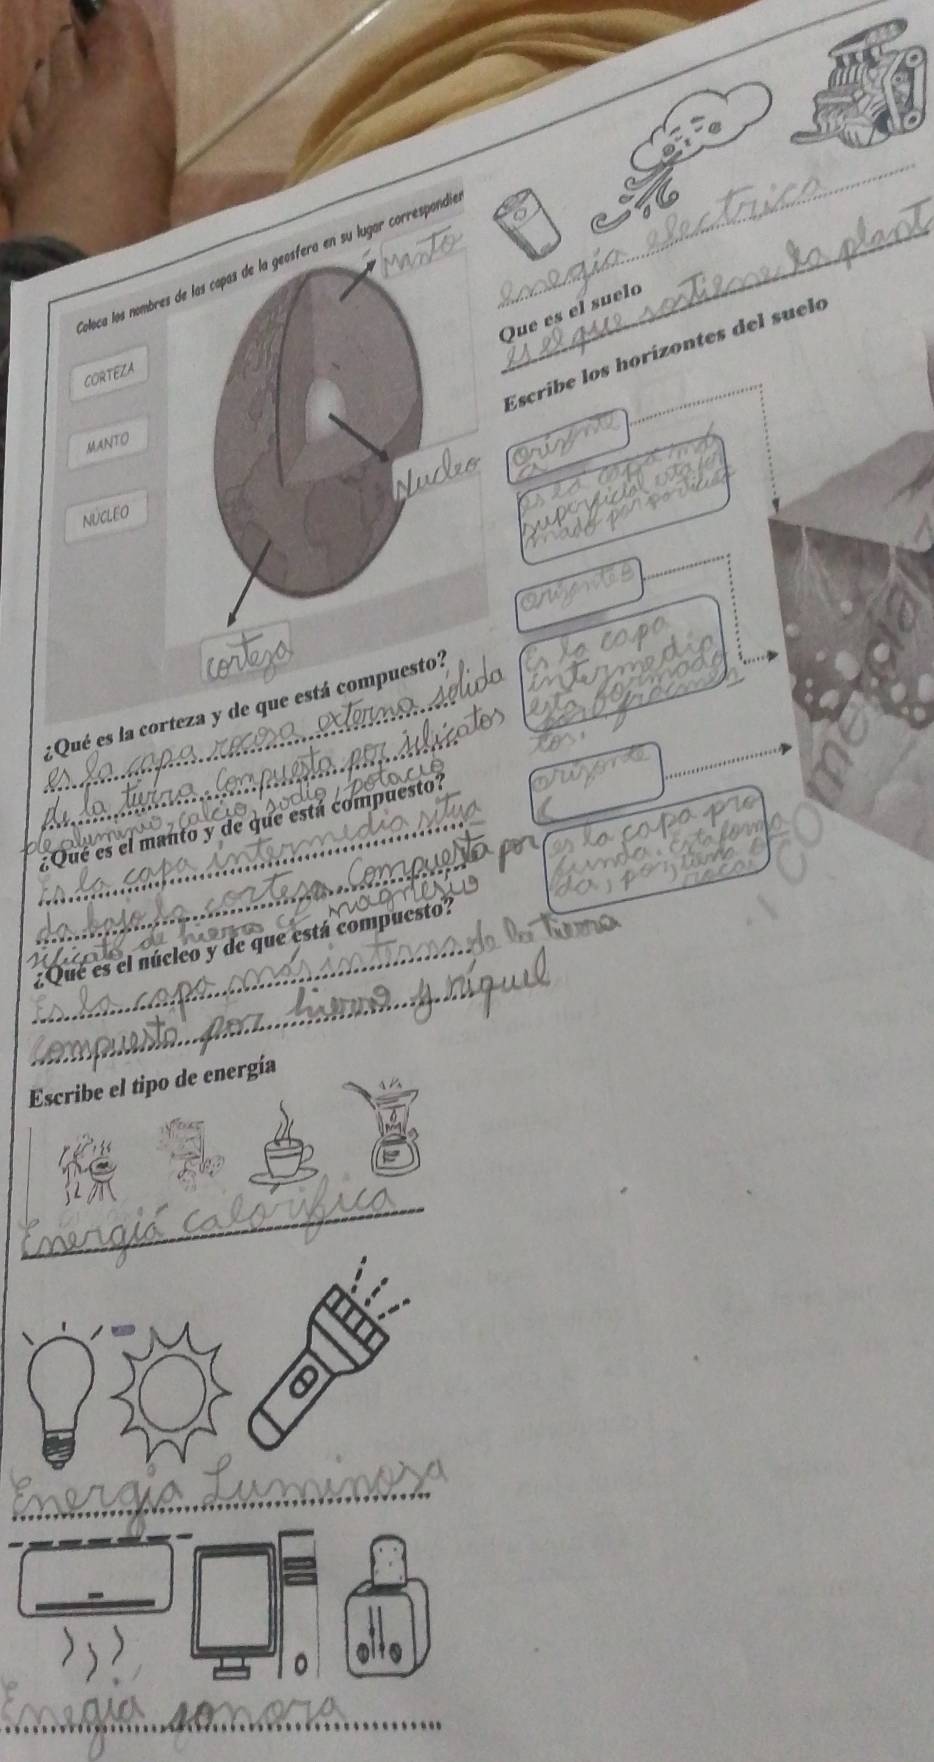 Coloca los nombres de las capas de la geosfera en su lugar correspondien
CORTEZA
MANTO
NÚCLEO
Manto
Nucleo
corteza
¿Qué es la corteza y de que está compuesto?
es la capa rocosa externa sólida
de la tierra. Compuesta por silicatos
de aluminio, calcio, sodio, potacio
¿Qué es el manto y de que está compuesto?
Es la capa intermedia situa
da bajo la corteza. Compuesta por
silicato de hierro y magnesio
¿Qué es el núcleo y de que está compuesto?
Es la capa más interna de la tierra
compuesta por hierro y níquel
Escribe el tipo de energía
Energiá calorifica
Energia Luminosa
Enegiá sonora
enegia electrica
Que es el suelo
es el que sostiene la plant
Escribe los horizontes del suelo
orizonte
a
es la capa más
superficial esta for
mado por particulas
orizontes
Es la capa
intermedia
esta formada
por fracmen
tos.
orizonte
C
es la capa pro
funda. Esta forma
da, por
roca